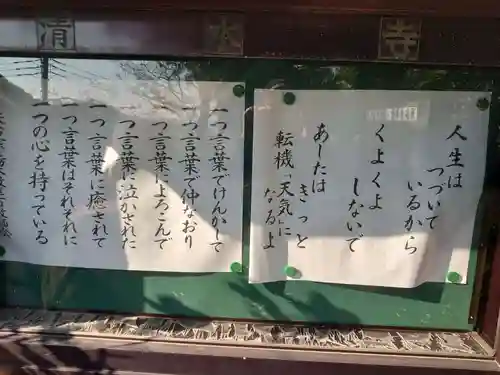 清
寺
人生は
つづいて
いるから
くよくよ
しないで
あしたは
きっと
転機「天気に
なるよ
一つ言葉でけんかして
一つ言葉で仲なおり
一つ言葉によろこんで
一つ言葉に泣かされた
一つ言葉に癒されて
一つ言葉はそれぞれに
一つの心を持っている